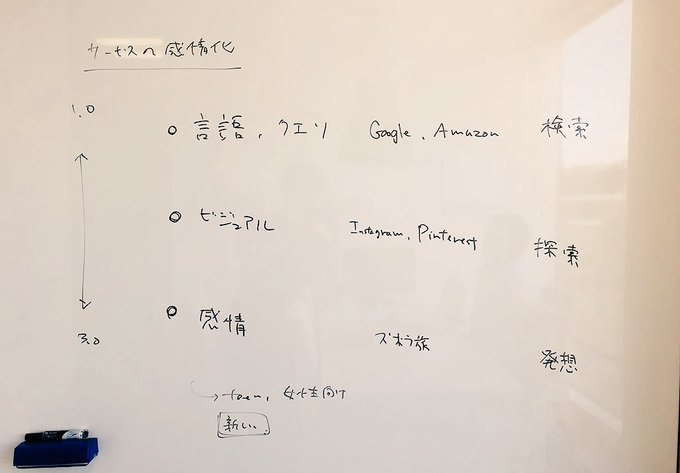 サービスの感情化
1.0
言語, クエリ Google, Amazon 検索
ビジュアル Instagram, Pinterest 探索
感情 ズボラ旅 発想
3.0
女性向け
新しい